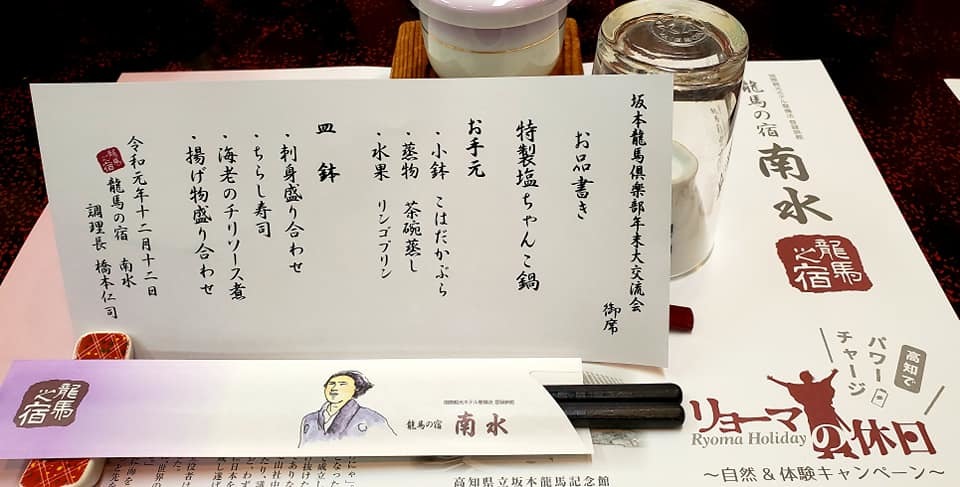 坂本龍馬倶楽部年末大交流会
御席
お品書き
特製塩ちゃんこ鍋
お手元
・小鉢　こはだかぶら
・蒸物　茶碗蒸し
・水果　リンゴプリン
皿　鉢
・刺身盛り合わせ
・ちらし寿司
・海老のチリソース煮
・揚げ物盛り合わせ
令和元年十二月十二日
龍馬の宿　南水
調理長　橋本仁司
龍馬之宿
龍馬の宿
南水
龍馬之宿
高知で
パワー
チャージ
リョーマの休日
Ryoma Holiday
～自然＆体験キャンペーン～
龍馬之宿
龍馬の宿　南水
高知県立坂本龍馬記念館